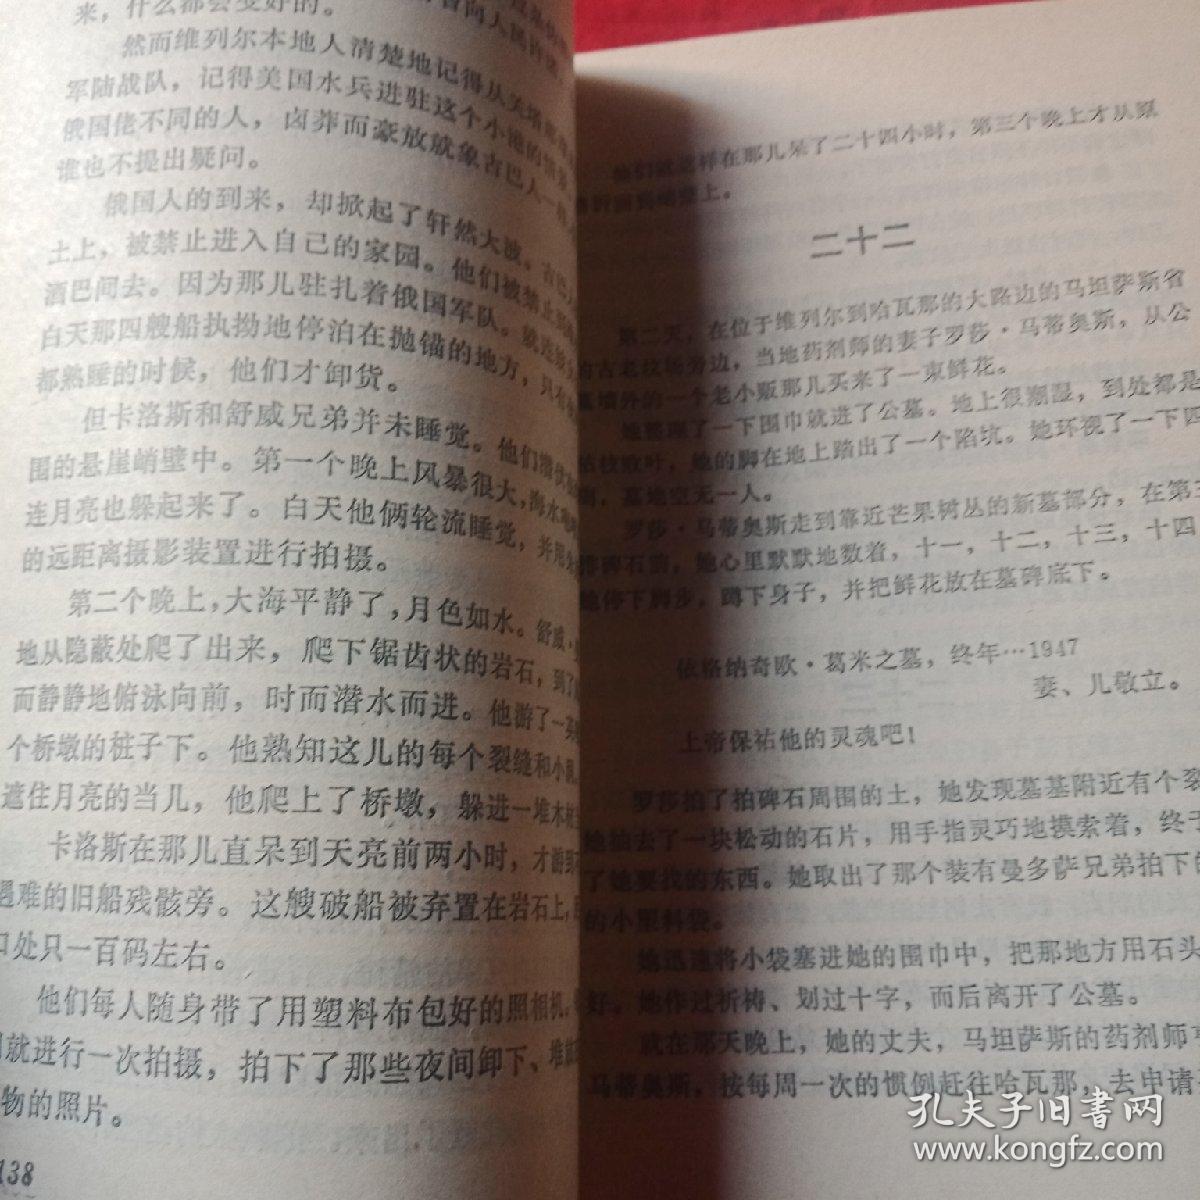 来，什么都会变好的。
然而维列尔本地人清楚地记得从关塔
军陆战队，记得美国水兵进驻这个小港的情景
俄国佬不同的人，卤莽而豪放就象古巴人一样
谁也不提出疑问。
俄国人的到来，却掀起了轩然大波。古巴人
土上，被禁止进入自己的家园。他们被禁止到
酒巴间去。因为那儿驻扎着俄国军队。
白天那四艘船执拗地停泊在抛锚的地方，只有
都熟睡的时候，他们才卸货。
但卡洛斯和舒威兄弟并未睡觉。他们潜伏
围的悬崖峭壁中。第一个晚上风暴很大，海水
连月亮也躲起来了。白天他俩轮流睡觉，并用
的远距离摄影装置进行拍摄。
第二个晚上，大海平静了，月色如水。舒威·
地从隐蔽处爬了出来，爬下锯齿状的岩石，到了
而静静地俯泳向前，时而潜水而进。他游了一英
个桥墩的桩子下。他熟知这儿的每个裂缝和小
遮住月亮的当儿，他爬上了桥墩，躲进一堆木材
卡洛斯在那儿直呆到天亮前两小时，才游到
遇难的旧船残骸旁。这艘破船被弃置在岩石上，
口处只一百码左右。
他们每人随身带了用塑料布包好的照相机。
就进行一次拍摄，拍下了那些夜间卸下、堆放
物的照片。
138
他们就这样在那儿呆了二十四小时，第三个晚上才从原
路折回到峭壁上。
二十二
第二天，在位于维列尔到哈瓦那的大路边的马坦萨斯省
的古老坟场旁边，当地药剂师的妻子罗莎·马蒂奥斯，从公
墓墙外的一个老小贩那儿买来了一束鲜花。
她整理了一下围巾就进了公墓。地上很潮湿，到处都是
枯枝败叶，她的脚在地上踏出了一个陷坑。她环视了一下四
周，墓地空无一人。
罗莎·马蒂奥斯走到靠近芒果树丛的新墓部分，在第三
排碑石前，她心里默默地数着，十一，十二，十三，十四
她停下脚步，蹲下身子，并把鲜花放在墓碑底下。
依格纳奇欧·葛米之墓，终年…1947
妻、儿敬立。
上帝保祐他的灵魂吧！
罗莎拍了拍碑石周围的土，她发现墓基附近有个裂
她抽去了一块松动的石片，用手指灵巧地摸索着，终于
了她要找的东西。她取出了那个装有曼多萨兄弟拍下的
的小塑料袋。
她迅速将小袋塞进她的围巾中，把那地方用石头
好。她作过祈祷、划过十字，而后离开了公墓。
就在那天晚上，她的丈夫，马坦萨斯的药剂师
马蒂奥斯，按每周一次的惯例赶往哈瓦那，去申请
孔夫子旧书网
www.kongfz.com